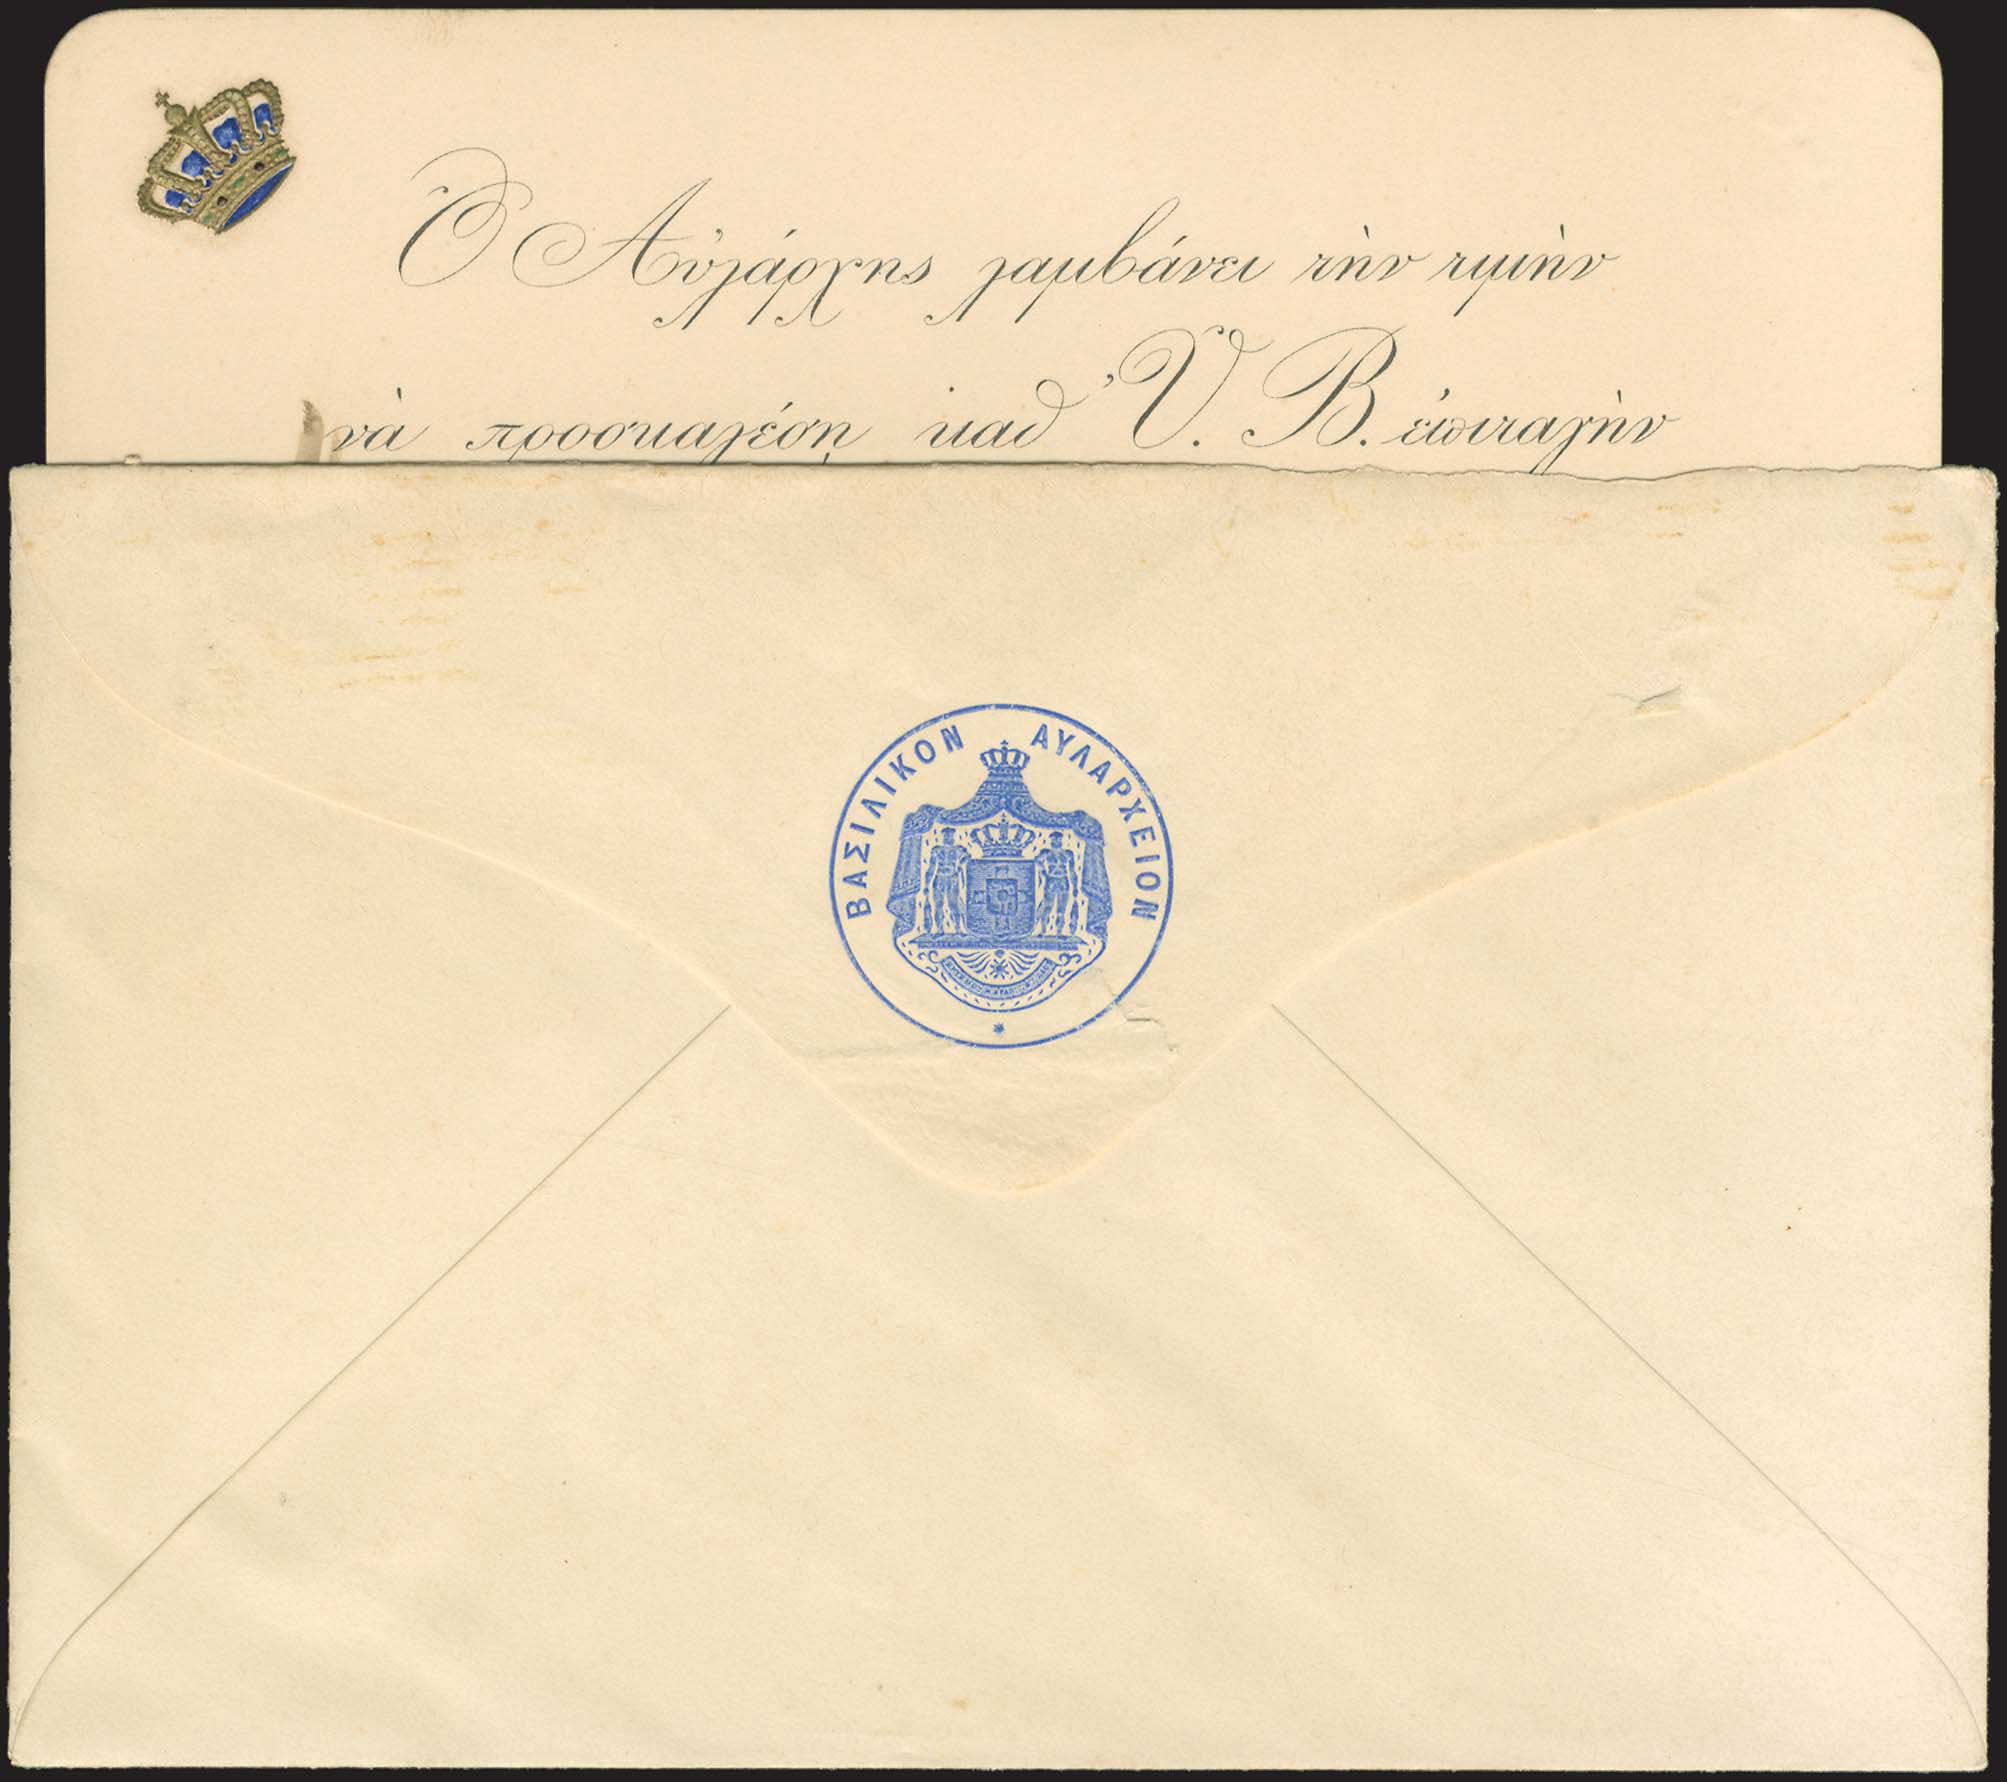 Ὁ Αὐλάρχης λαμβάνει τὴν τιμὴν
νὰ προσκαλέσῃ καθ' Ὑ. Β. ἐπιταγὴν
ΒΑΣΙΛΙΚΟΝ ΑΥΛΑΡΧΕΙΟΝ